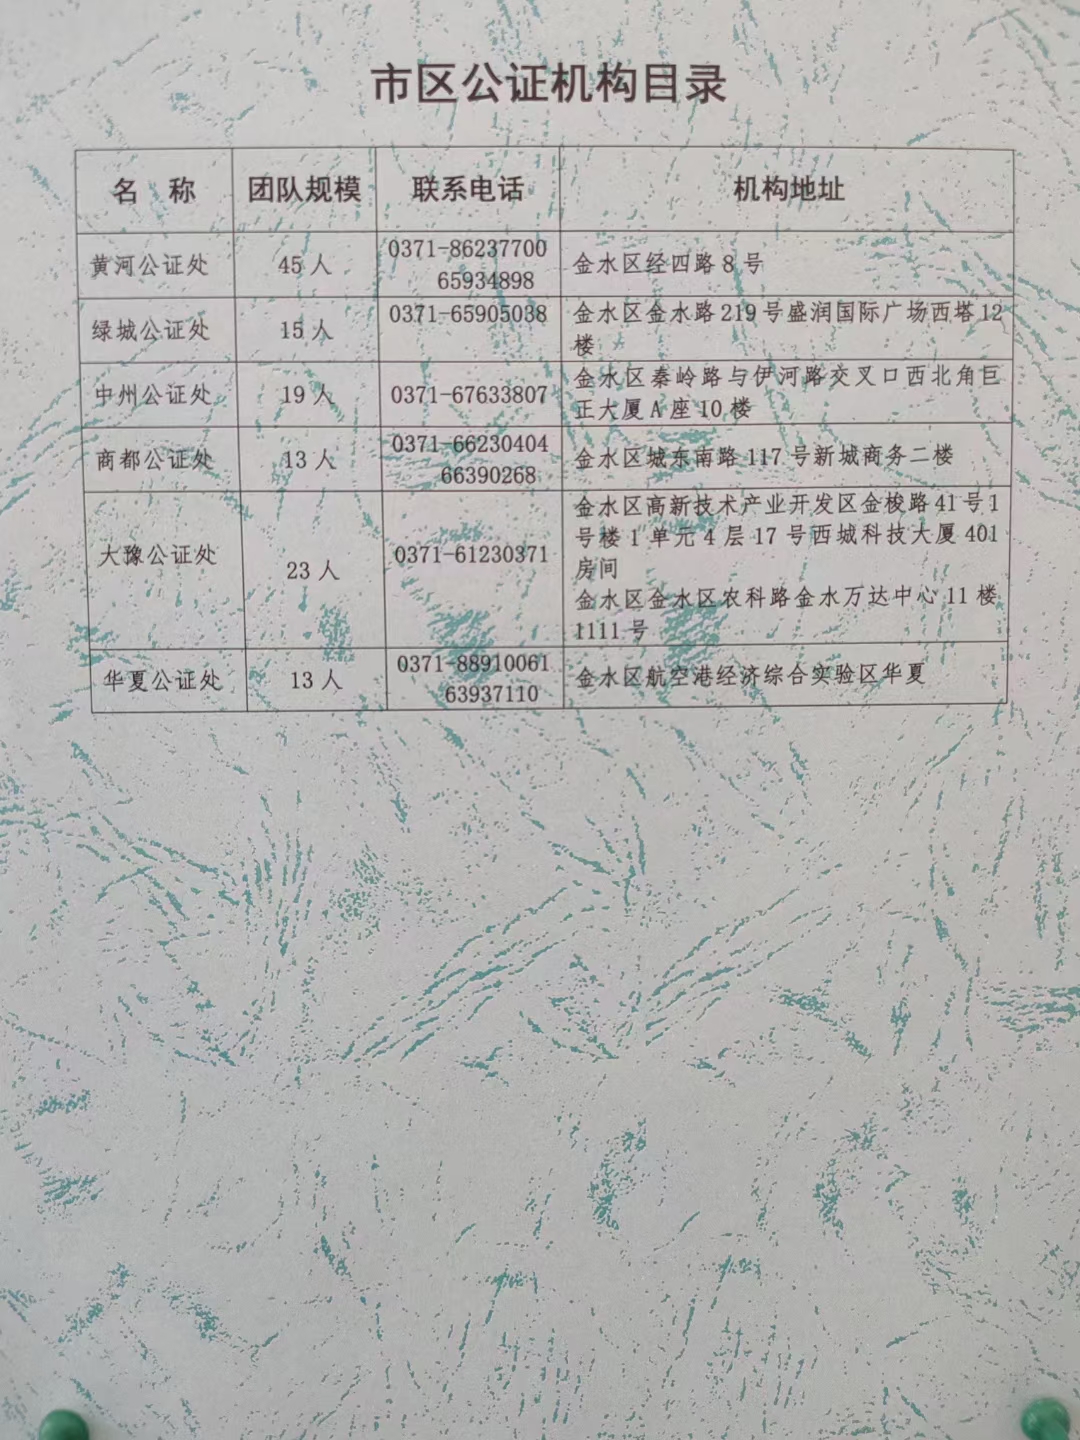 市区公证机构目录
名 称 团队规模 联系电话 机构地址
黄河公证处 45人 0371-86237700 金水区经四路8号
65934898
绿城公证处 15人 0371-65905038 金水区金水路219号盛润国际广场西塔12
楼
中州公证处 19人 0371-67633807 金水区秦岭路与伊河路交叉口西北角巨
正大厦A座10楼
商都公证处 13人 0371-66230404 金水区城东南路117号新城商务二楼
66390268
大豫公证处 23人 0371-61230371 金水区高新技术产业开发区金梭路41号1
号楼1单元4层17号西城科技大厦401
房间
金水区金水区农科路金水万达中心11楼
1111号
华夏公证处 13人 0371-88910061 金水区航空港经济综合实验区华夏
63937110